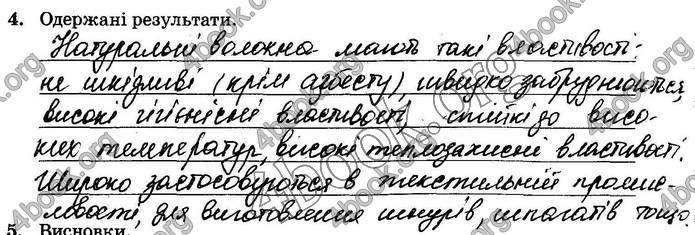 4. Одержані результати.
Натуральні волокна мають такі властивості:
не шкідливі (крім азбесту), швидко забруднюються,
високі гігієнічні властивості, стійкі до висо-
ких температур, високі теплозахисні властивості.
Широко застосовуються в текстильній промис-
ловості, для виготовлення шнурів, шпагатів тощо.
5. Висновки.